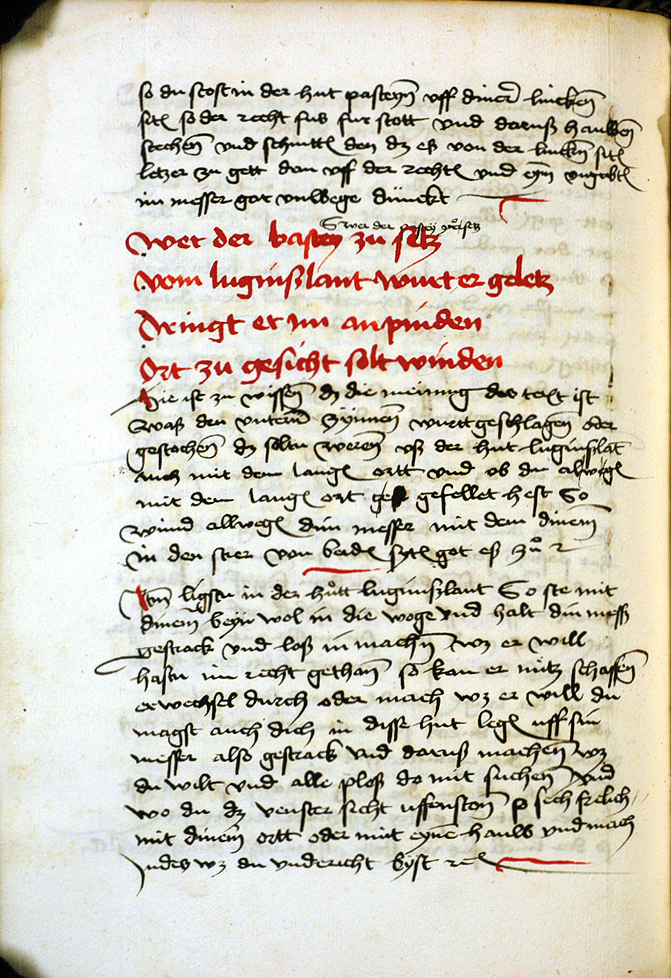 so du stost in der hut pasteyn vff diner lincken
sitt so der recht fus fur stott vnd daruß hauwen
stechen vnd schnitt den dz eß von der lincken sitt
letzer zu gett dan vff der recht vnd eym vngeobt
im messer got vnwege dünckt
Swer der pastey
Wer der bastey zu setz
vom luginßlant wurt er geletz
Dringt er im an pinden
Ort zu gesicht solt winden
Hie ist zu wissen dz die meinung des text ist
waß den vntern zynnen wurtt geschlagen oder
gestochen dz soltu weren vß der hut luginßlat
auch mit dem lang ortt vnd ob du alweg
mit dem lang ort gefellet hest So
wind allweg din messer mit dem dinem
in den stier von beid sytt got eß zu
Itm ligstu in der hutt luginßlant So ste mit
dinem beyn wol in die woge vnd halt din mess
gestrack vnd loß in machen wz er will
hastu im recht gethan so kan er nütz schaffen
er wechsel durch oder mach wz er will du
magst auch dich in disse hut leg vff sin
messer also gestrack vnd daruß machen wz
du wilt vnd alle ploß do mit suchen vnd
wo du dz venster sicht uffenston sech frelich
mit dinem ortt oder mit eyne hauw vnd mach
Indes wz du vndericht byst